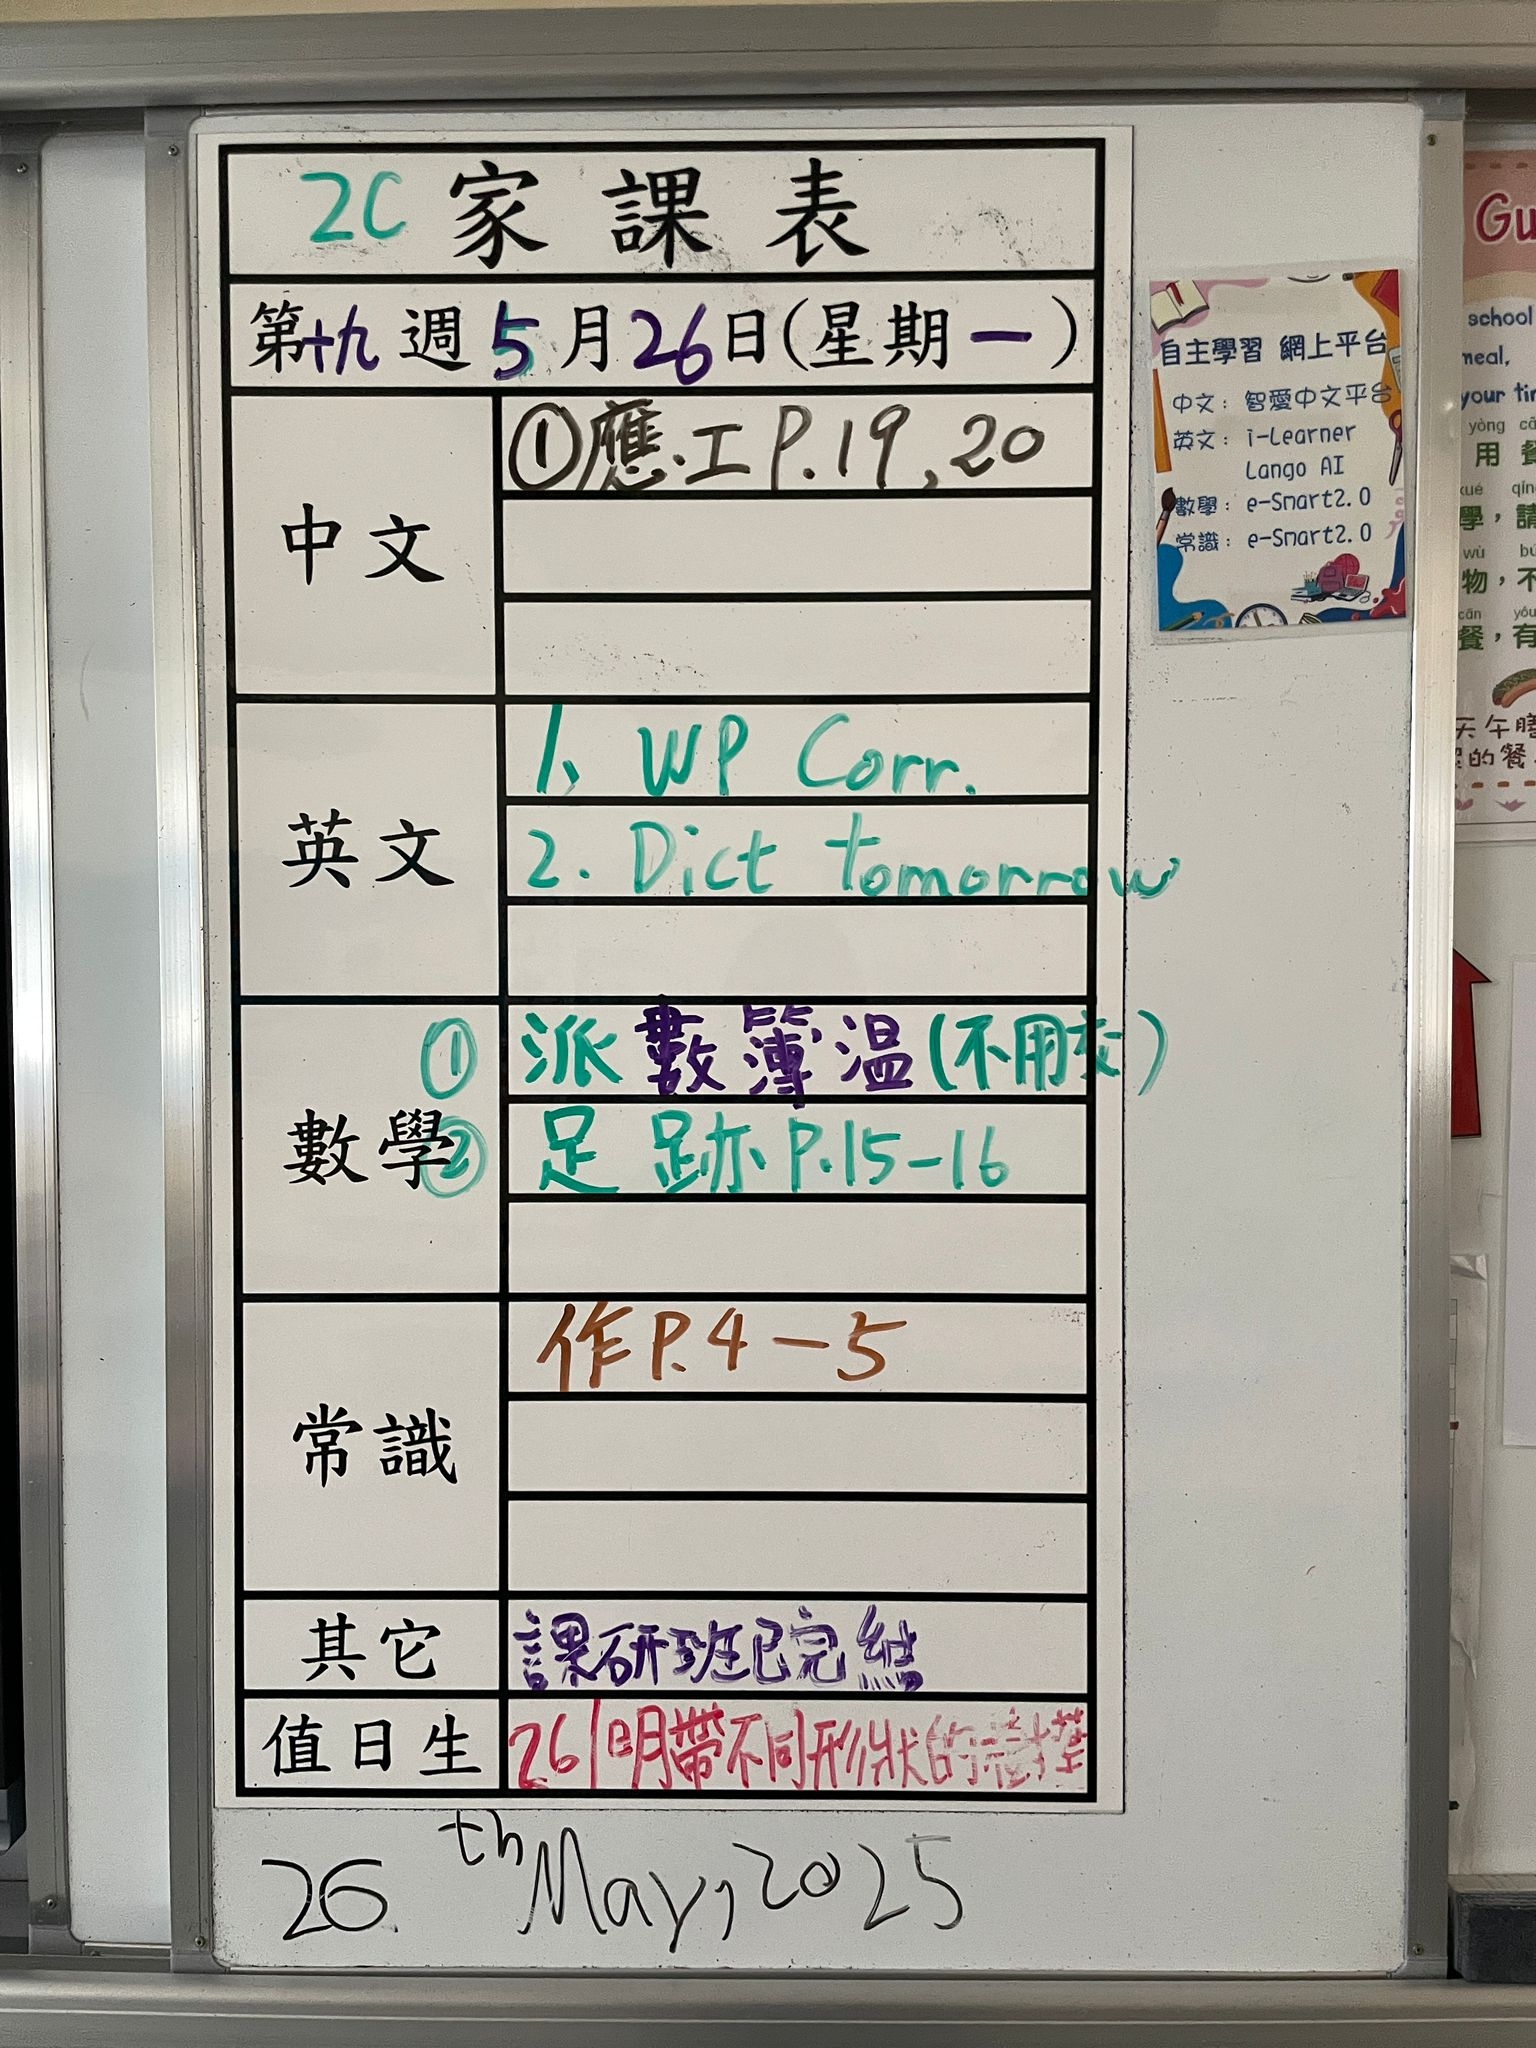 2C 家課表
第十九週 5月26日(星期一)
中文
①應.工 P.19,20
英文
1. WP Corr.
2. Dict tomorrow
數學
① 派數簿溫(不用交)
② 足跡 P.15-16
常識
作P.4-5
其它
課研班已完結
值日生
26 明帶不同形狀的
26th May, 2025
自主學習 網上平台
中文: 智愛中文平台
英文: i-Learner
Lango AI
數學: e-Smart2.0
常識: e-Smart2.0
Gu
school
meal,
your tim
yòng cā
用餐
xué qǐn
學,請
wù bú
物,不
cān yǒu
餐,有
天午膳
的餐